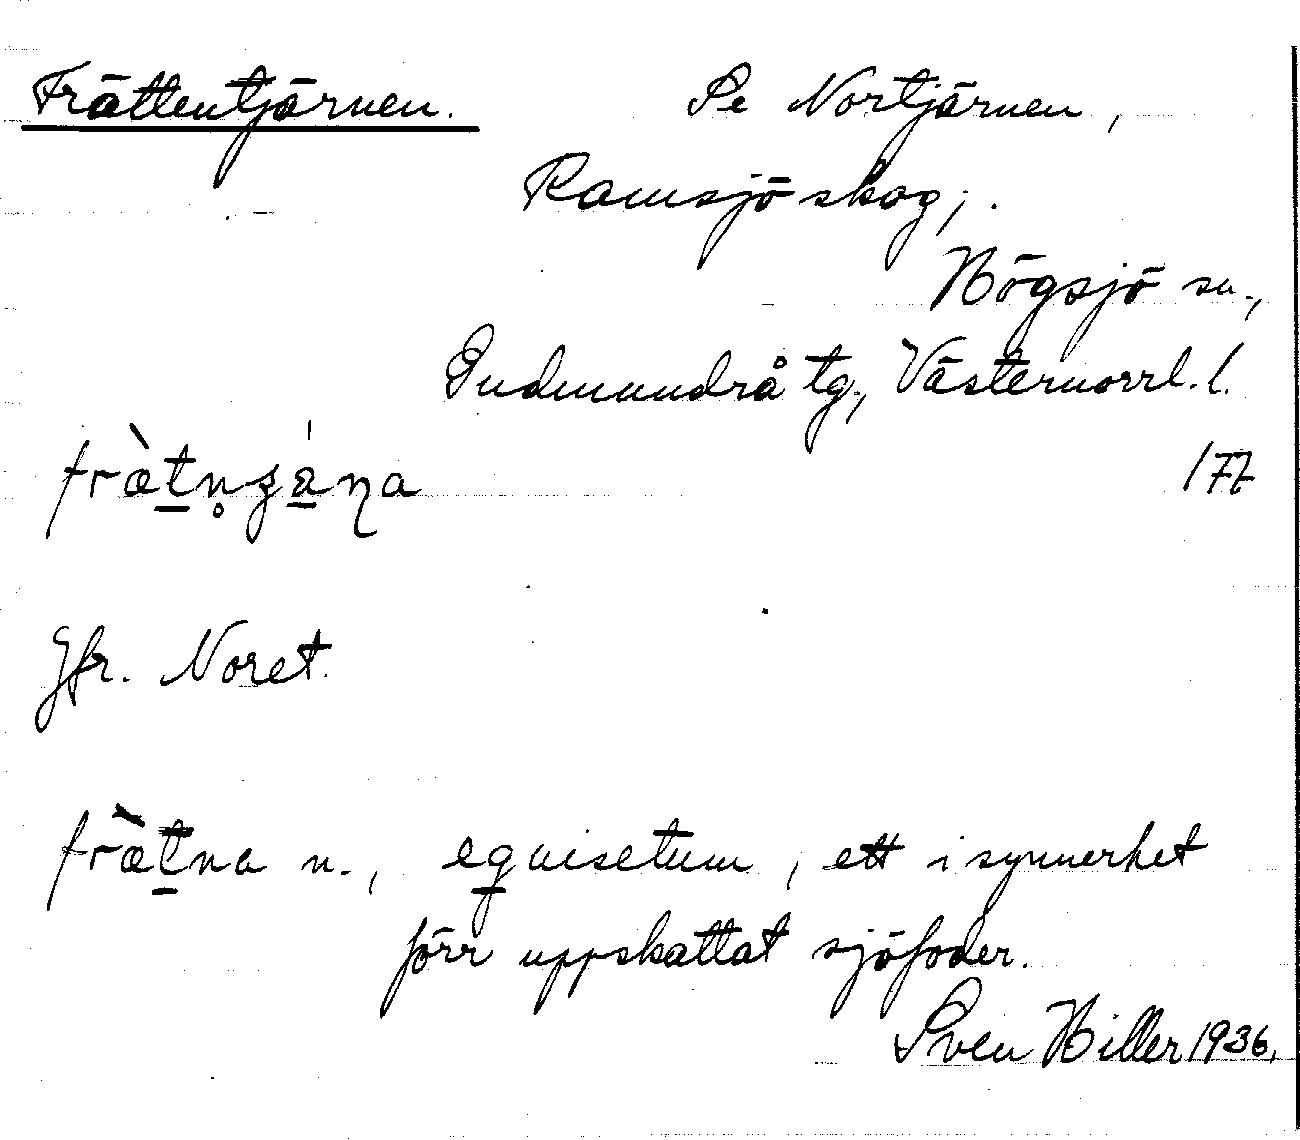 Frättentjärnen. Se Nortjärnen,
Ramsjö skog,
Högsjö sn.,
Gudmundrå tg., Västernorrl. l.
177
Jfr. Noret.
n., equisetum, ett i synnerhet
förr uppskattat sjöfoder.
Sven Hiller 1936.